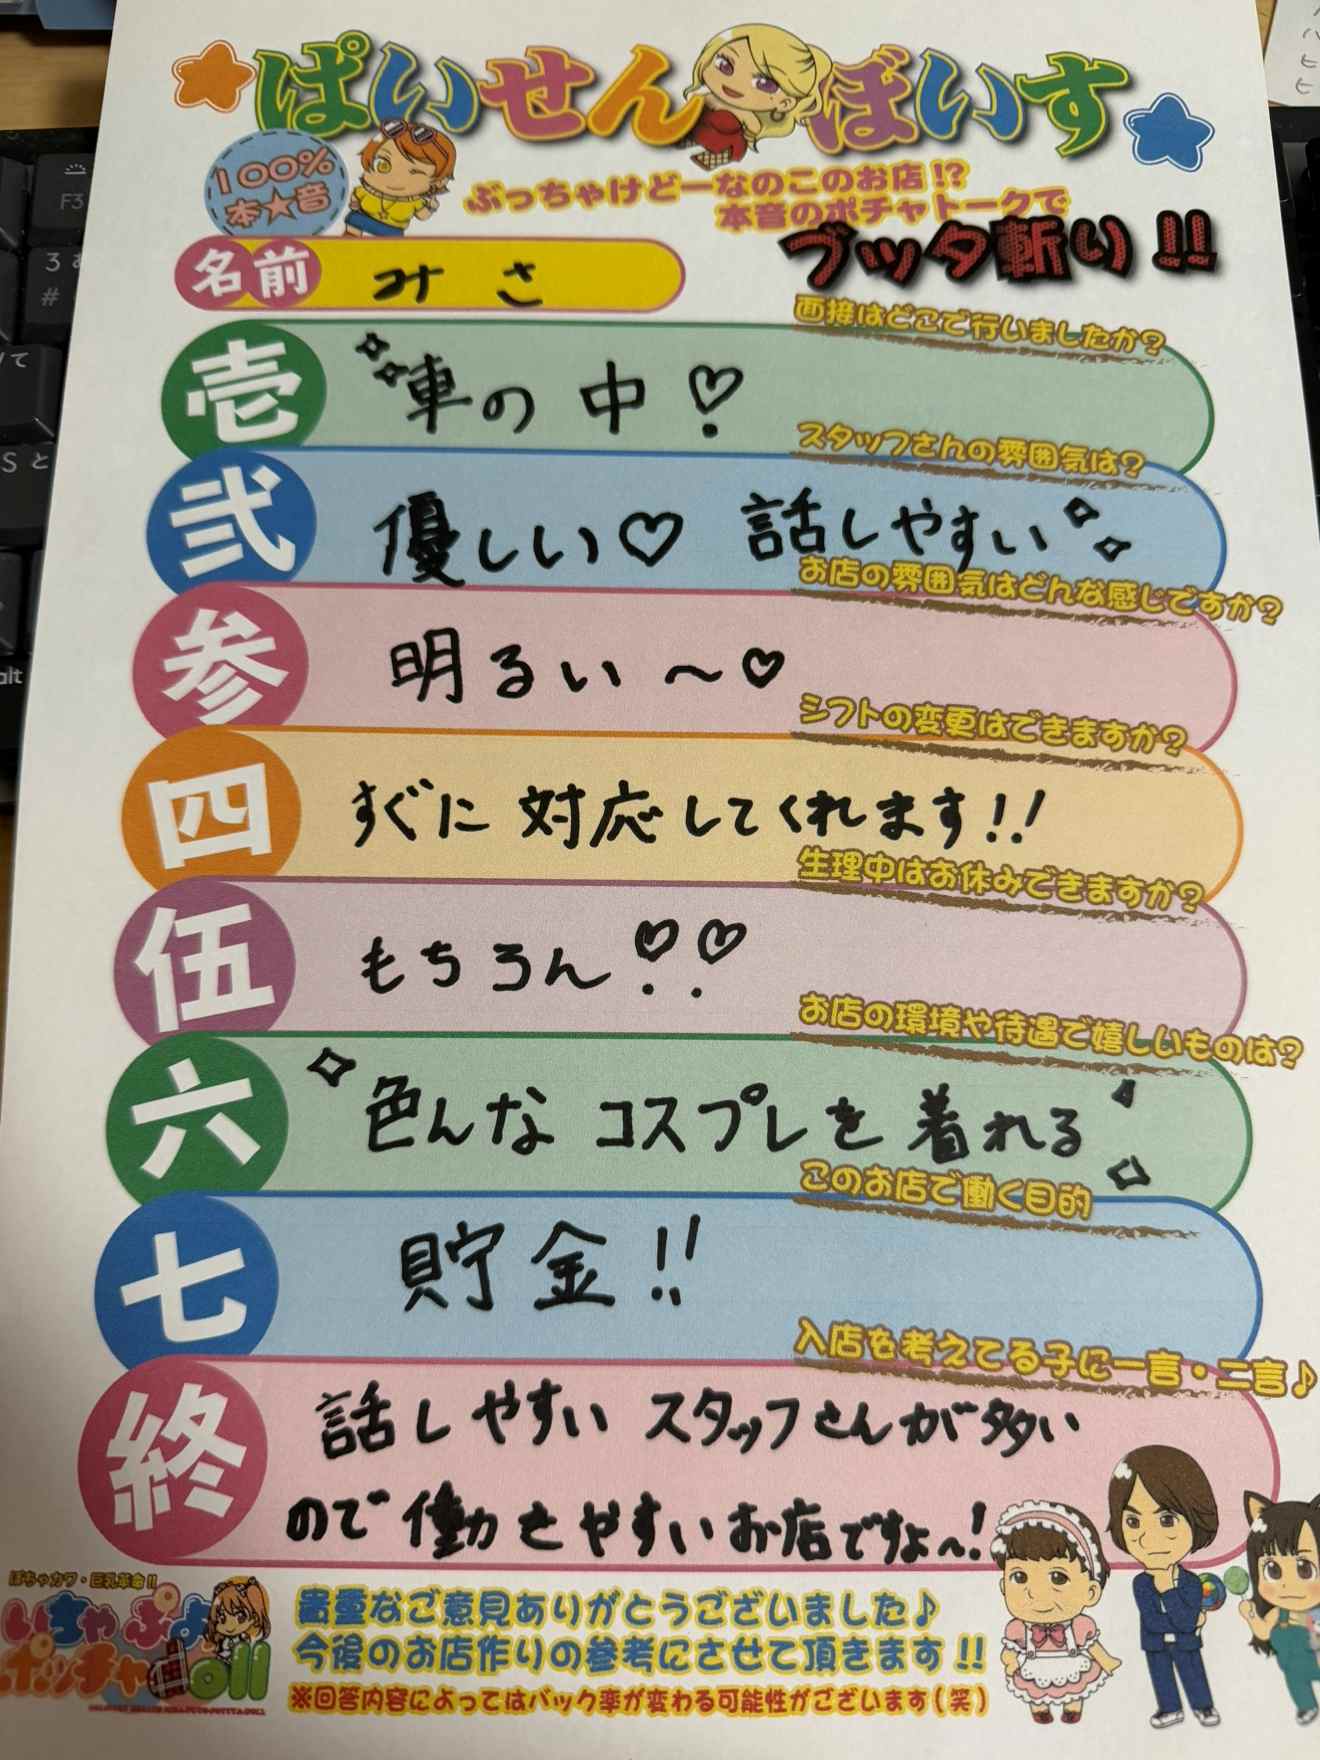 ぱいせんぼいす
100%
本★音
ぶっちゃけどーなのこのお店!?
本音のポチャトークで
ブッタ斬り!!
名前 みさ
面接はどこで行いましたか?
壱 車の中♡
スタッフさんの雰囲気は?
弐 優しい♡ 話しやすい
お店の雰囲気はどんな感じですか?
参 明るい〜♡
シフトの変更はできますか?
四 すぐに対応してくれます!!
生理中はお休みできますか?
伍 もちろん♡♡
お店の環境や待遇で嬉しいものは?
六 色んなコスプレを着れる
このお店で働く目的
七 貯金!!
入店を考えてる子に一言・二言♪
終 話しやすいスタッフさんが多い
ので働きやすいお店ですよ〜!
ぽちゃカワ・巨乳革命!!
いちゃぷよ
ポッチャdoll
貴重なご意見ありがとうございました♪
今後のお店作りの参考にさせて頂きます!!
※回答内容によってはバック率が変わる可能性がございます(笑)
F3
3 あ
#
S と
alt